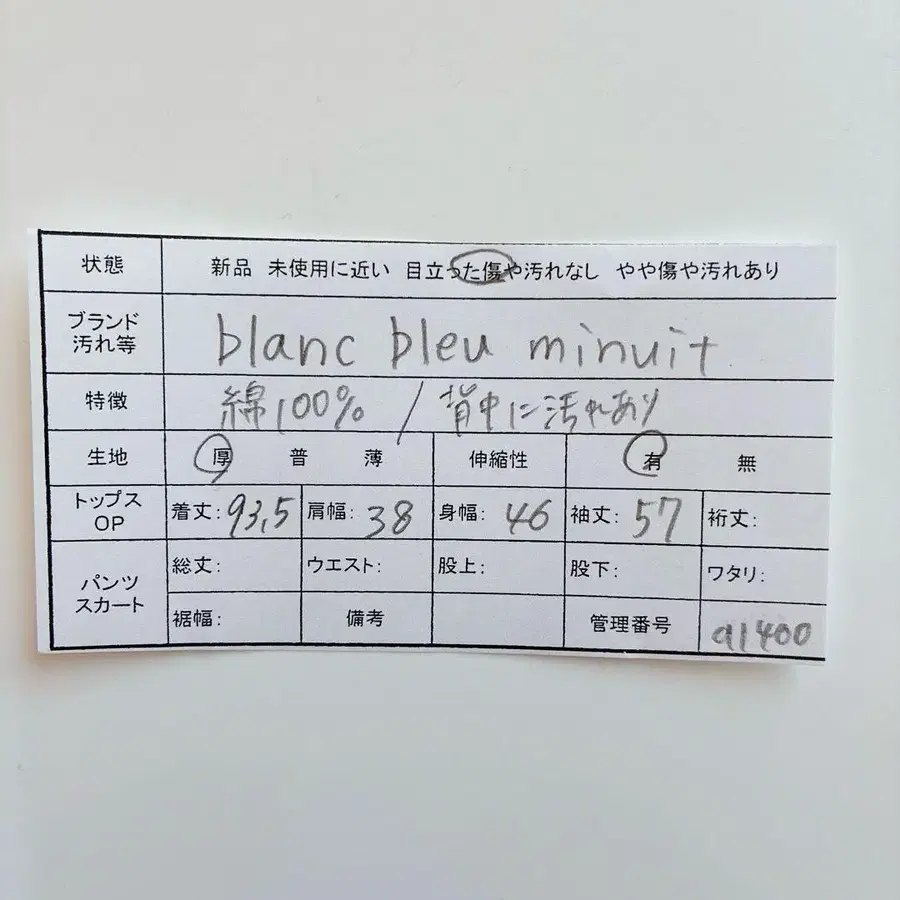 状態 新品 未使用に近い 目立った傷や汚れなし やや傷や汚れあり
ブランド
汚れ等 blanc bleu minuit
特徴 綿100% / 背中に汚れあり
生地 厚 普 薄 伸縮性 有 無
トップス
OP 着丈: 93,5 肩幅: 38 身幅: 46 袖丈: 57 裄丈:
パンツ
スカート
総丈: ウエスト: 股上: 股下: ワタリ:
裾幅: 備考 管理番号 a1400